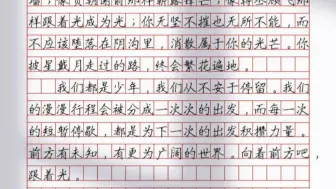 样跟着光成为光；你无坚不摧也无所不能，而
不应该堕落在阴沟里，消散属于你的光芒。你
披星戴月走过的路，终会繁花遍地。
我们都是少年，我们从不安于停留。我们
的漫漫行程会被分成一次次的出发，而每一次
的短暂停歇，都是为下一次的出发积攒力量。
前方有未知，有更为广阔的世界。向着前方吧，
跟着光。